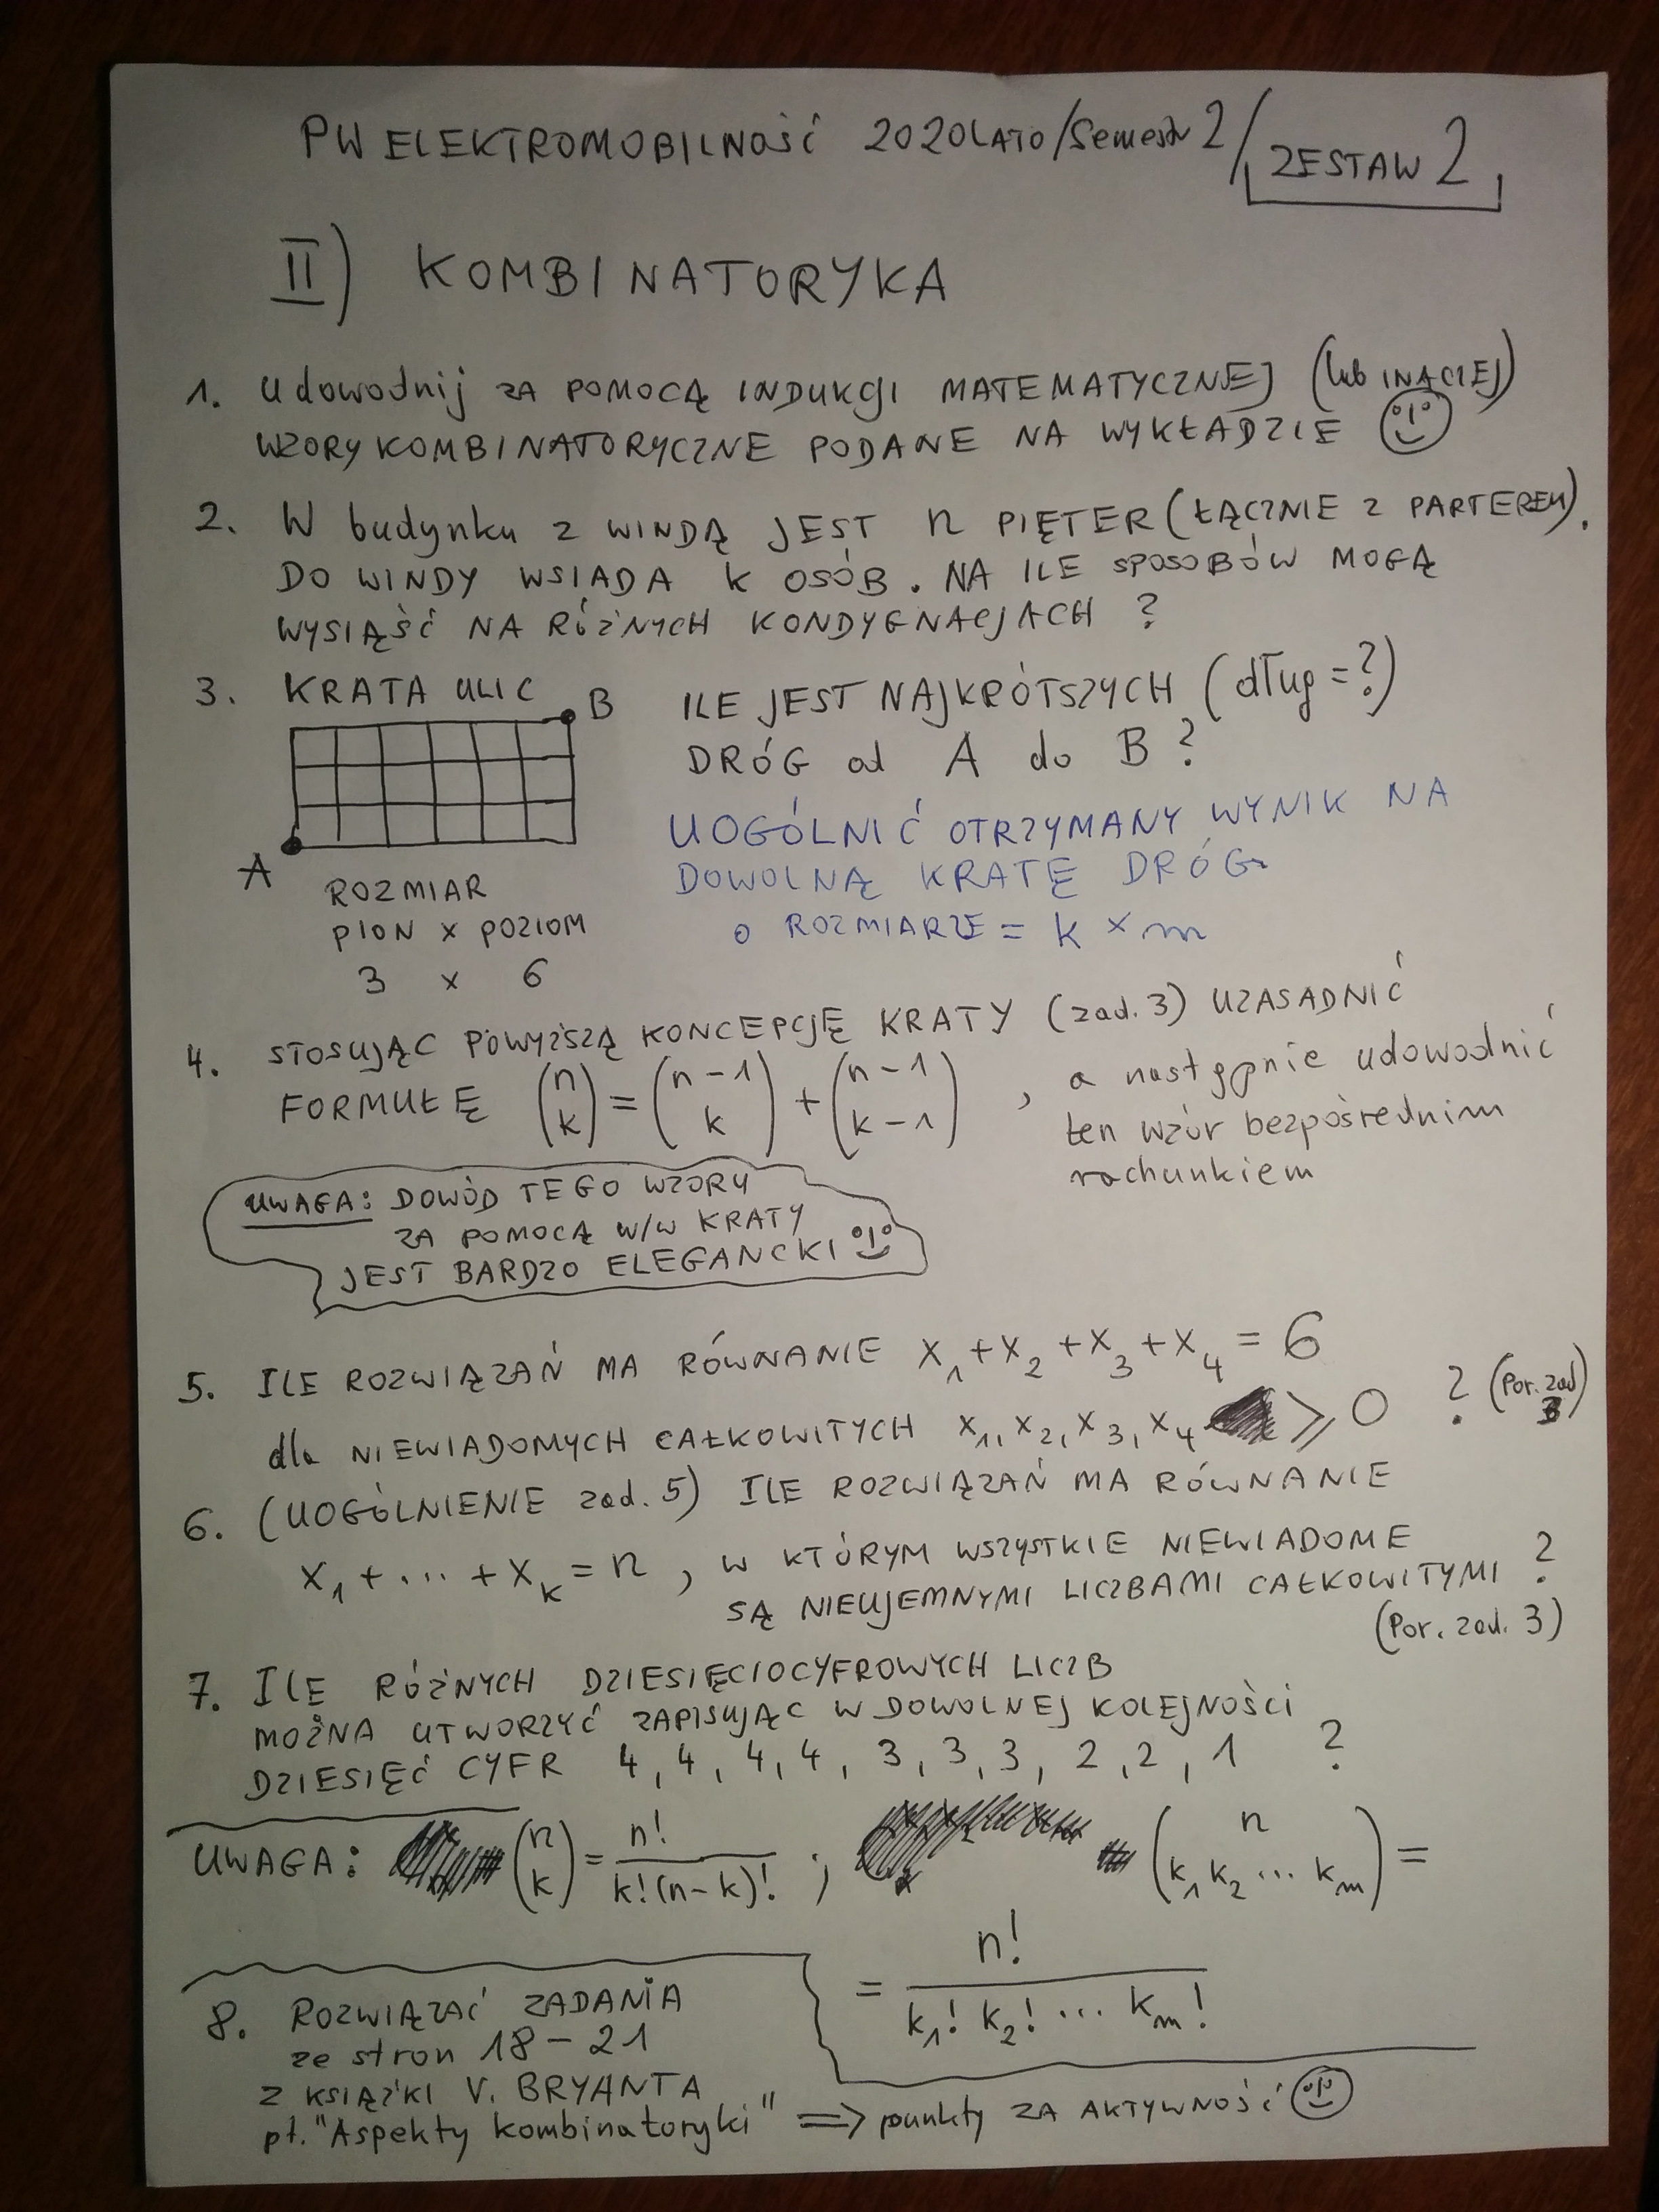 PW ELEKTROMOBILNOŚĆ 2020LATO/Semestr 2/ ZESTAW 2
II) KOMBINATORYKA
1. Udowodnij ZA POMOCĄ INDUKCJI MATEMATYCZNEJ (lub INACZEJ)
WZORY KOMBINATORYCZNE PODANE NA WYKŁADZIE
2. W budynku z WINDĄ JEST n PIĘTER (ŁĄCZNIE Z PARTEREM).
DO WINDY WSIADA k OSÓB. NA ILE SPOSOBÓW MOGĄ
WYSIĄŚĆ NA RÓŻNYCH KONDYGNACJACH ?
3. KRATA ULIC
B
A
ROZMIAR
PION x POZIOM
3 x 6
ILE JEST NAJKRÓTSZYCH (dług = ?)
DRÓG od A do B ?
UOGÓLNIĆ OTRZYMANY WYNIK NA
DOWOLNĄ KRATĘ DRÓG
O ROZMIARZE = k × m
4. STOSUJĄC POWYŻSZĄ KONCEPCJĘ KRATY (zad. 3) UZASADNIĆ
FORMUŁĘ (n k) = (n-1 k) + (n-1 k-1) , a następnie udowodnić
ten wzór bezpośrednim
rachunkiem
UWAGA: DOWÓD TEGO WZORU
ZA POMOCĄ W/W KRATY
JEST BARDZO ELEGANCKI
5. ILE ROZWIĄZAŃ MA RÓWNANIE x₁+x₂+x₃+x₄ = 6
dla NIEWIADOMYCH CAŁKOWITYCH x₁, x₂, x₃, x₄ ⩾ 0 ? (Por. zad 3)
6. (UOGÓLNIENIE zad. 5) ILE ROZWIĄZAŃ MA RÓWNANIE
x₁ + ... + xₖ = n , W KTÓRYM WSZYSTKIE NIEWIADOME
SĄ NIEUJEMNYMI LICZBAMI CAŁKOWITYMI ?
(Por. zad. 3)
7. ILE RÓŻNYCH DZIESIĘCIOCYFROWYCH LICZB
MOŻNA UTWORZYĆ ZAPISUJĄC W DOWOLNEJ KOLEJNOŚCI
DZIESIĘĆ CYFR 4, 4, 4, 4, 3, 3, 3, 2, 2, 1 ?
UWAGA: (n k) = n! / k!(n-k)! ; (n k₁ k₂ ... kₘ) =
= n! / k₁! k₂! ... kₘ!
8. ROZWIĄZAĆ ZADANIA
ze stron 18-21
Z KSIĄŻKI V. BRYANTA
pt. "Aspekty kombinatoryki" => punkty ZA AKTYWNOŚĆ